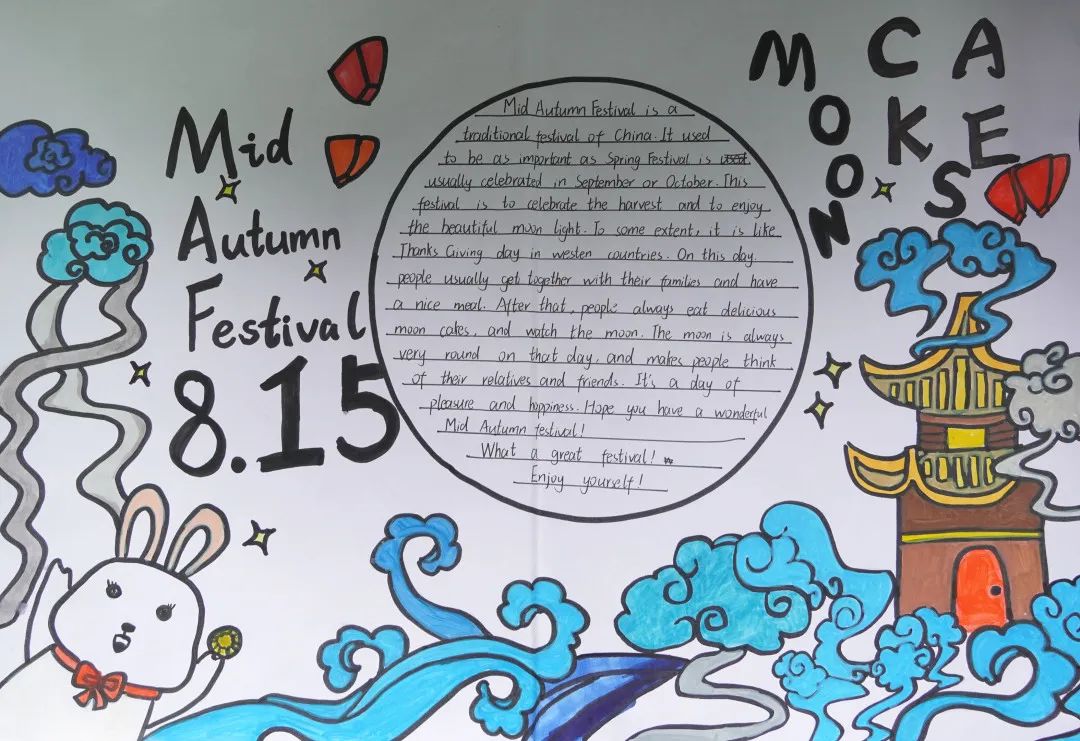 Mid
Autumn
Festival
8.15
Mid Autumn Festival is a
traditional festival of China. It used
to be as important as Spring Festival is
usually celebrated in September or October. This
festival is to celebrate the harvest and to enjoy
the beautiful moon light. To some extent, it is like
Thanks Giving day in westen countries. On this day.
people usually get together with their families and have
a nice meal. After that, people always eat delicious
moon cakes, and watch the moon. The moon is always
very round on that day, and makes people think
of their relatives and friends. It's a day of
pleasure and happiness. Hope you have a wonderful
Mid Autumn festival!
What a great festival!
Enjoy yourself!
MOON
CA
KE
S